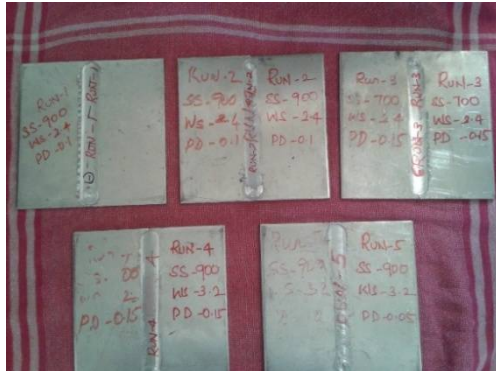 RUN-1
SS-900
WS-2.4
PD-0.1
RUN-1 RUN-1
RUN-2
SS-900
WS-2.4
PD-0.1
RUN-2
SS-900
WS-2.4
PD-0.1
RUN-3
SS-700
WS-2.4
PD-0.15
RUN-3
RUN-3
SS-700
WS-2.4
PD-0.15
PD-0.15
4
RUN-4
RUN-4
SS-900
WS-3.2
PD-0.15
RUN-5
RUN-5
SS-900
WS-3.2
PD-0.05